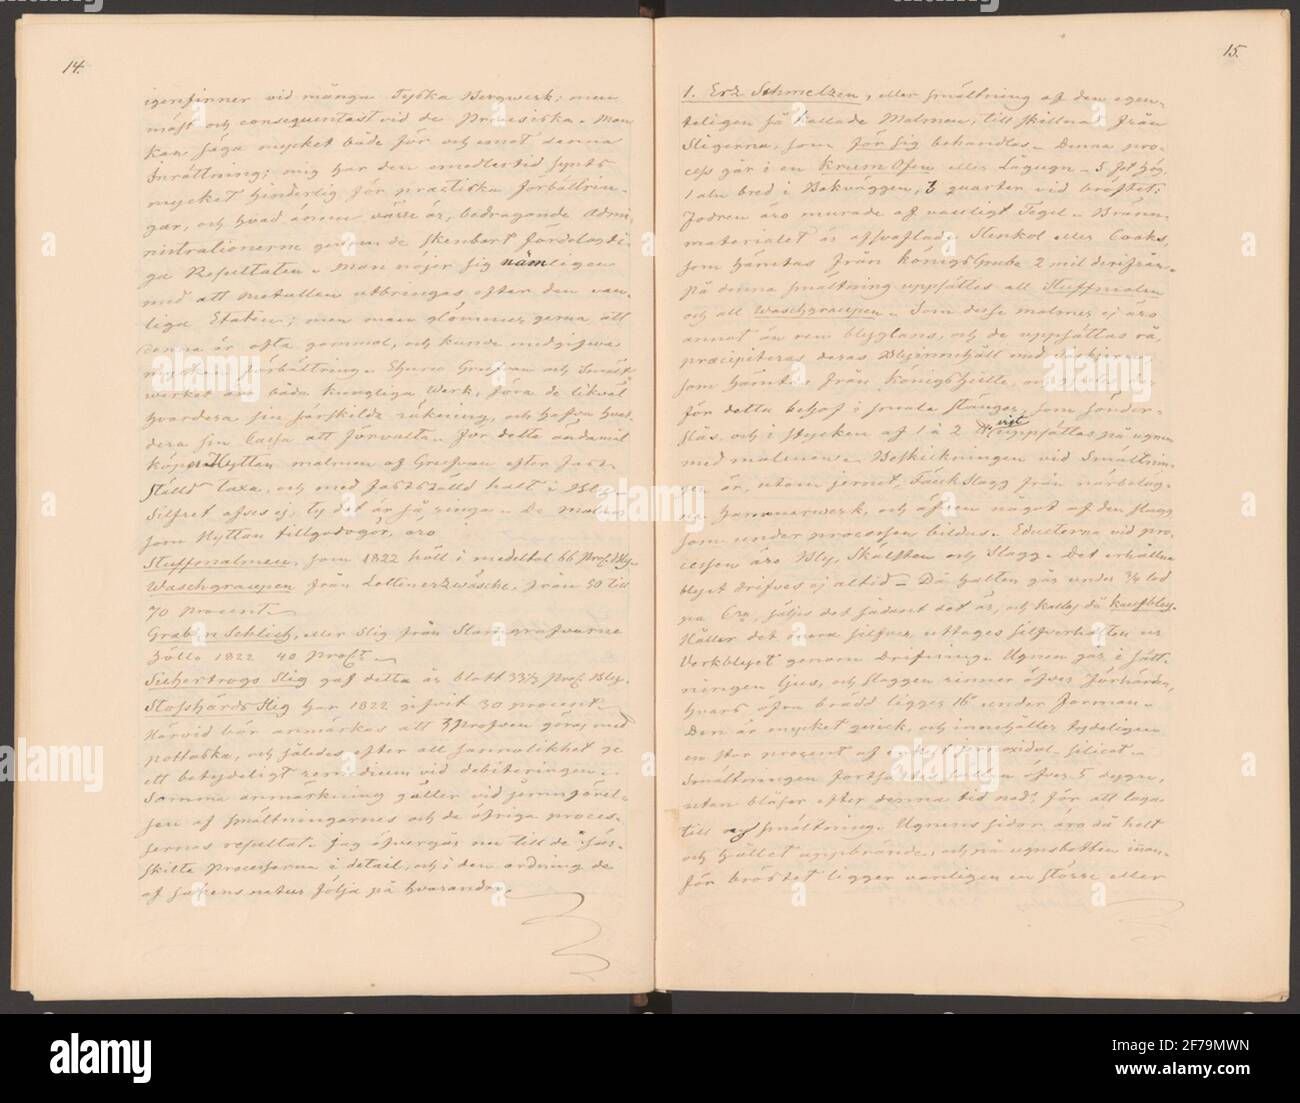 14.
igenfinner vid många Tyska Bergwerk; men
mäst och consequentast vid de Preussiska. Man
kan säga mycket både för och emot denna
Inrättning; mig har den emedlertid synts
mycket hinderlig för practiska förbättrin-
gar, och hvad ännu värre är, bedragande Admi-
nistrationerne genom de skenbart fördelagti-
ga Resultaten. Man nöjer sig nämligen
med att metallen utbringas efter den van-
liga Etaten; men man glömmer gerna att
denna är ofta gammal, och kunde medgifva
mycken förbättring. Ehuru Grufvan och Smält-
werket äro båda kungliga Werk, föra de likväl
hvardera sin särskilda räkning, och hafva hvar-
dera sin Cassa att förvalta. För detta ändamål
köper Hyttan malmen af Grufvan efter fast-
ställd taxa, och med fastställd halt i Bly.
Silfret afses ej, ty det är så ringa. De malmer
som Hyttan tillgodogör, äro
Stuffmalmen, som 1822 höll i medeltal 66 Proc. Bly.
Waschgraupen från Setzwäsche, från 50 till
70 procent.
Graben Schlich, eller Slig från Slamgrafvarne
hölle 1822 40 Proct.
Sichertrogs Slig gaf detta år blott 33½ Proc. Bly.
Stosshärds Slig har 1822 gifvit 30 procent.
Härvid bör anmärkas att Profven göras med
pottaska, och således efter all sannolikhet ge
ett betydeligt remedium vid debiteringen.
Samma anmärkning gäller vid jemnförel-
sen af smältningarnes och de öfriga proces-
sernes resultat. Jag öfvergår nu till de sär-
skilta Processerna i detail, och i den ordning de
af sakens natur följa på hvarandra.
15.
1. Erz Schmelzen, eller smältning af den egen-
teligen så kallade Malmen, till skillnad från
Sligerna, som för sig behandlas. Denna pro-
cess går i en Krum Ofen eller Lågugn 5 fot hög,
1 aln bred i Bakväggen, 3 quarter vid bröstet.
Fodren äro murade af vanligt Tegel. Bränn-
materialet är afsvaflade Stenkol eller Cooks,
som hämtas från Königs Grube 2 mil derifrån.
På denna smältning uppsättes all Stuffmalm
och all Waschgraupen. Som desse malmer ej äro
annat än ren blyglans, och de uppsättas rå,
præcipiteras deras Blyinnehåll med tackjern
som hämtas från Königshütte, och gjutes der
för detta behof i smala stänger, som sönder-
slås, och i stycken af 1 à 2 uppsättas på ugnen
med malmen. Beskickningen vid Smältnin-
gen är, utom jernet, Färskslagg från närbelag-
ne Hammarwerk, och äfven något af den slagg
som under processen bildas. Educterna vid pro-
cessen äro Bly, Skärsten och Slagg. Det erhållna
blyet drifves ej altid. Då halten går under ¾ lod
pa Ctn, säljes det sådant det är, och kallas då kaufbley.
Håller det mera silfver, uttages silfverhalten ur
Verkblyet genom Drifning. Ugnen går i sätt-
ningen ljus, och slaggen rinner öfver Förhärden,
hvars öfra brädd ligger 16" under Forman.
Den är mycket quick, och innehåller tydeligen
en stor procent af
Smältningen fortsättes sällan öfver 5 dygn,
utan blåses efter denna tid ned, för att laga
till ny smältning. Ugnens sidor äro då helt
och hållet uppbrände, och på ugnsbotten inan-
för bröstet ligger vanligen en större eller
alamy
Image ID: 2F79MWN
www.alamy.com